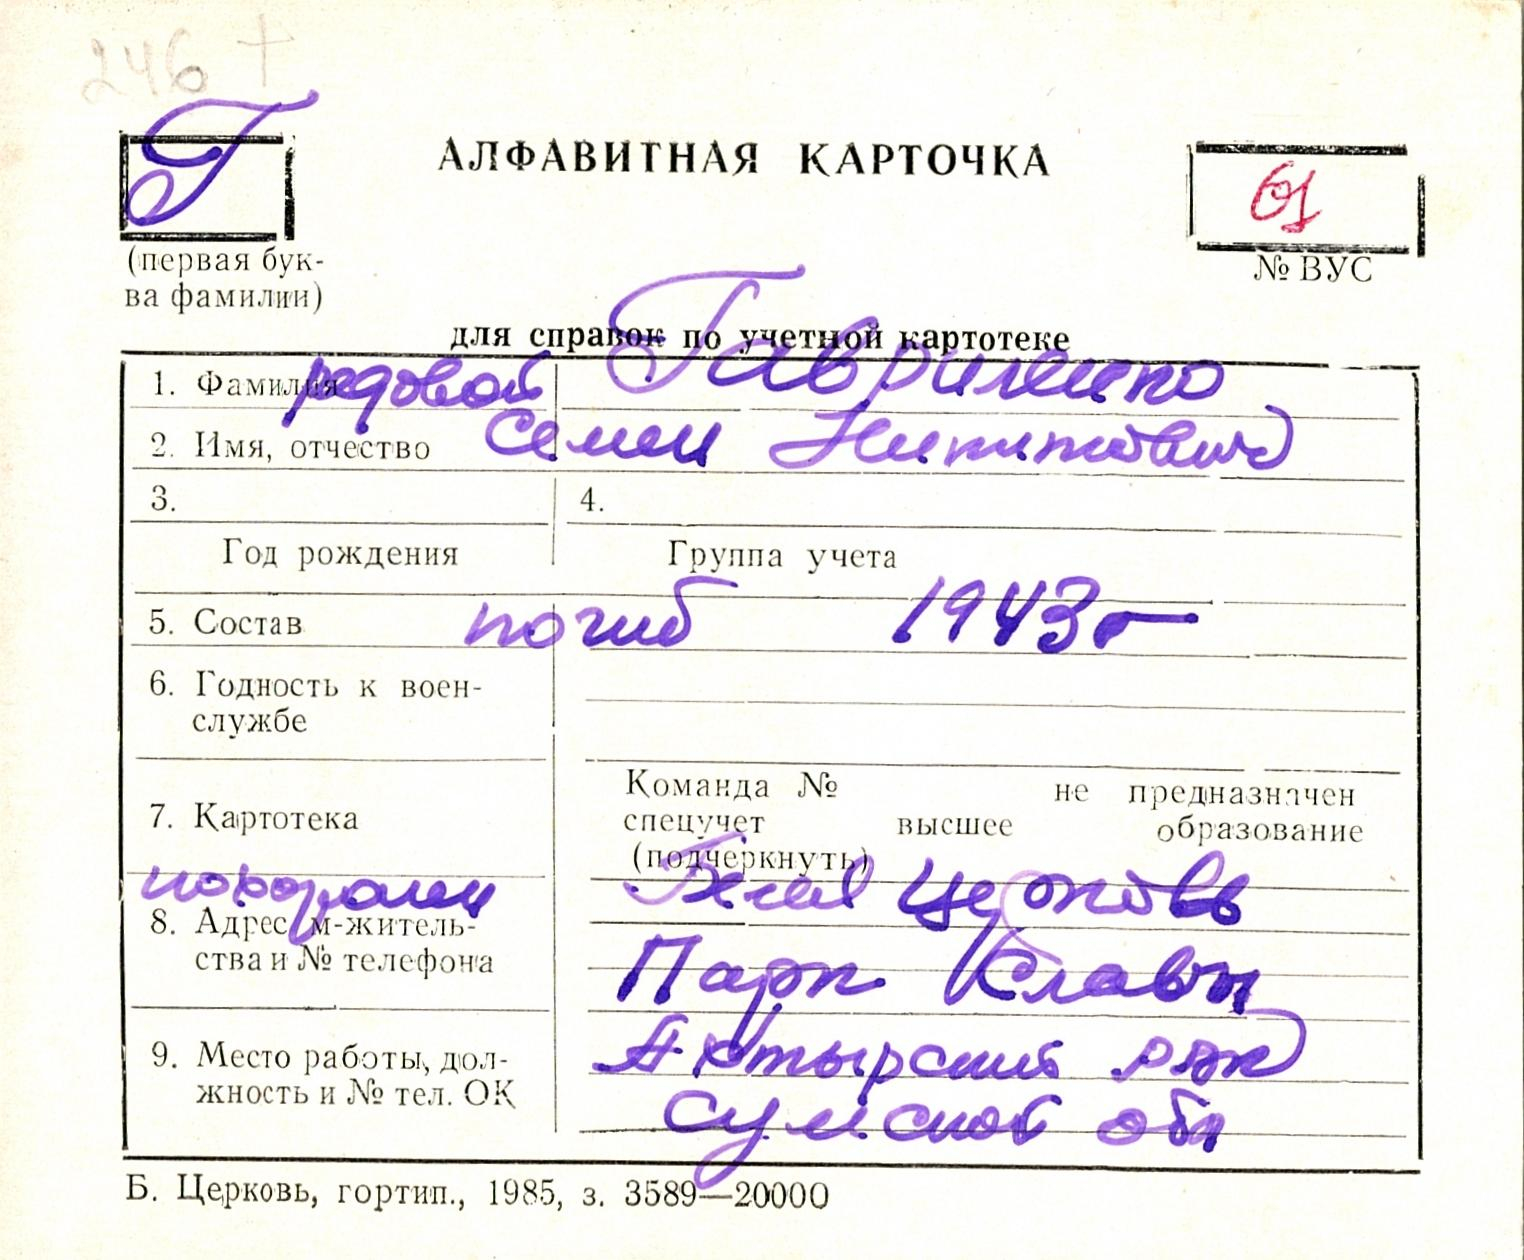 246 +
Г
АЛФАВИТНАЯ КАРТОЧКА
61
(первая бук-
ва фамилии)
№ ВУС
для справок по учетной картотеке
1. Фамилия рядовой Гавриленко
2. Имя, отчество Семен Никитович
3.
4.
Год рождения
Группа учета
5. Состав погиб 1943г
6. Годность к воен-
службе
7. Картотека
Команда № не предназначен
спецучет высшее образование
(подчеркнуть)
похоронен Белая Церковь
8. Адрес м-житель-
ства и № телефона
Парк Славы
9. Место работы, дол-
жность и № тел. ОК
Ахтырский р-он
Сумской обл
Б. Церковь, гортип., 1985, з. 3589—20000